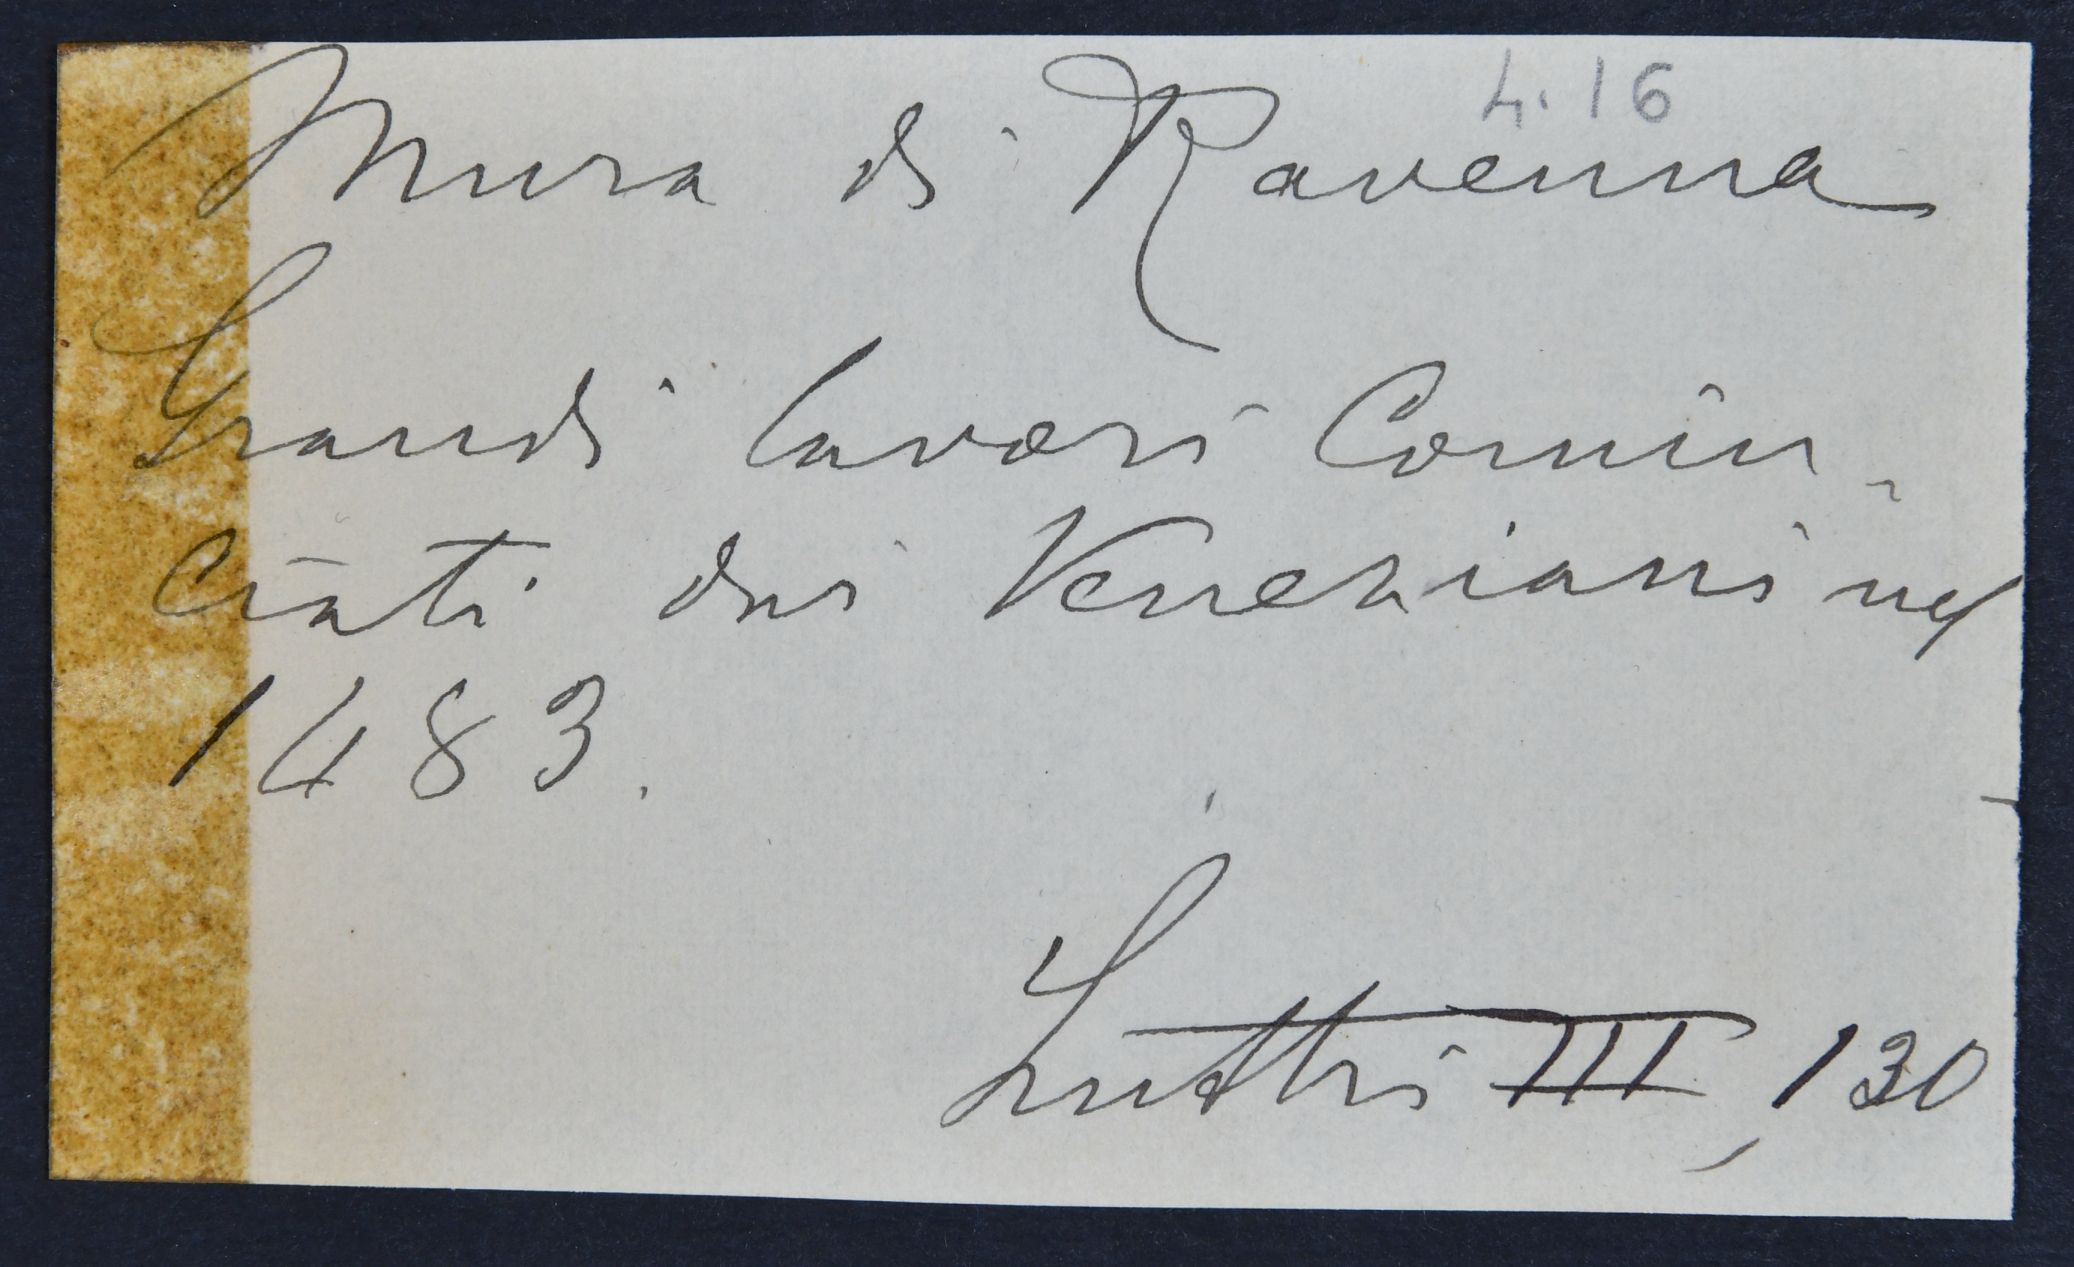 4.16
Mura di Ravenna
Grandi lavori Comin-
ciati dai Veneziani nel
1483.
III, 130